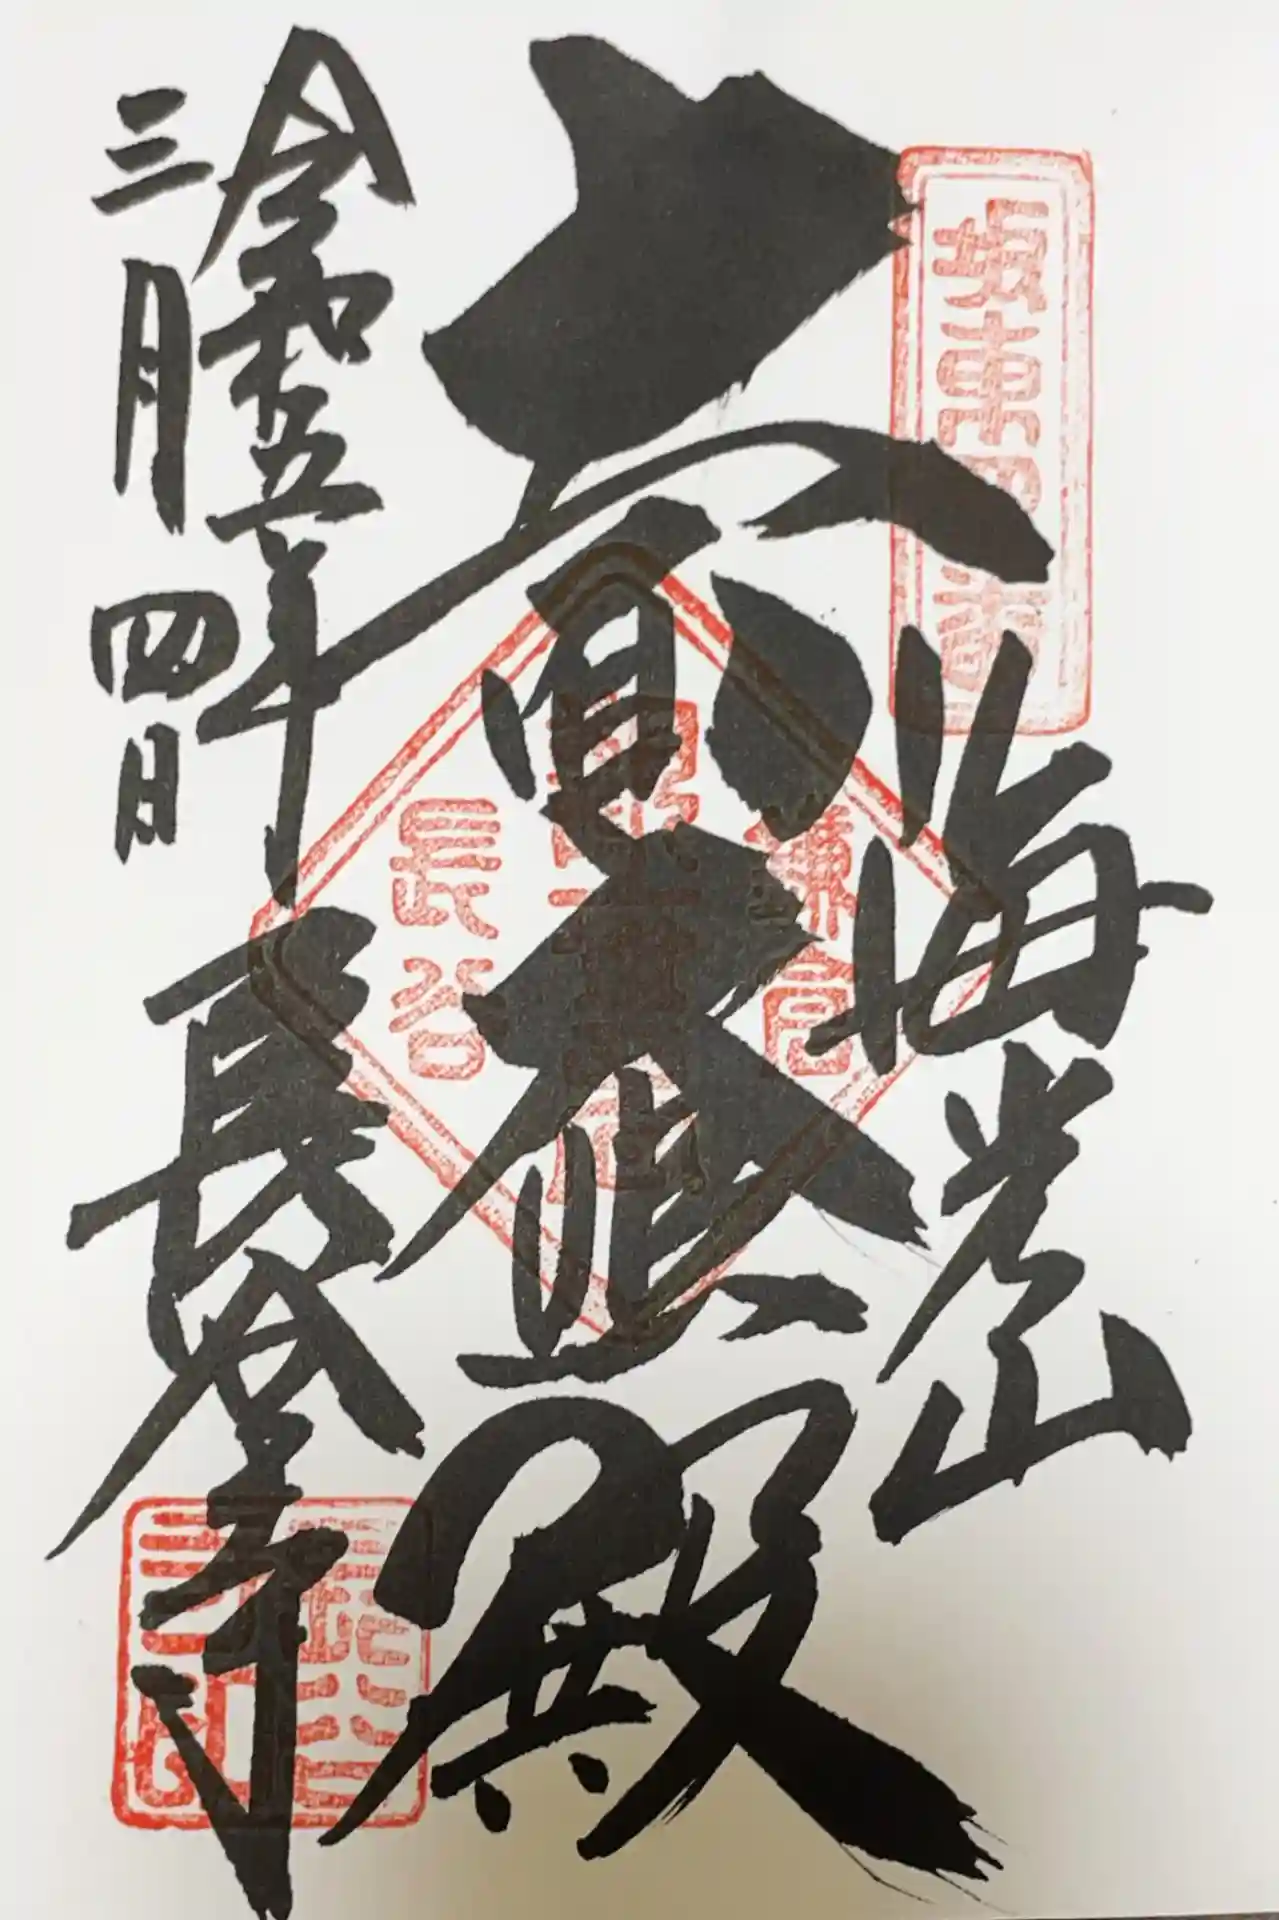 坂東四番
海光山
面大悲殿
鎌倉
長谷
令和五年
三月四日
長谷寺